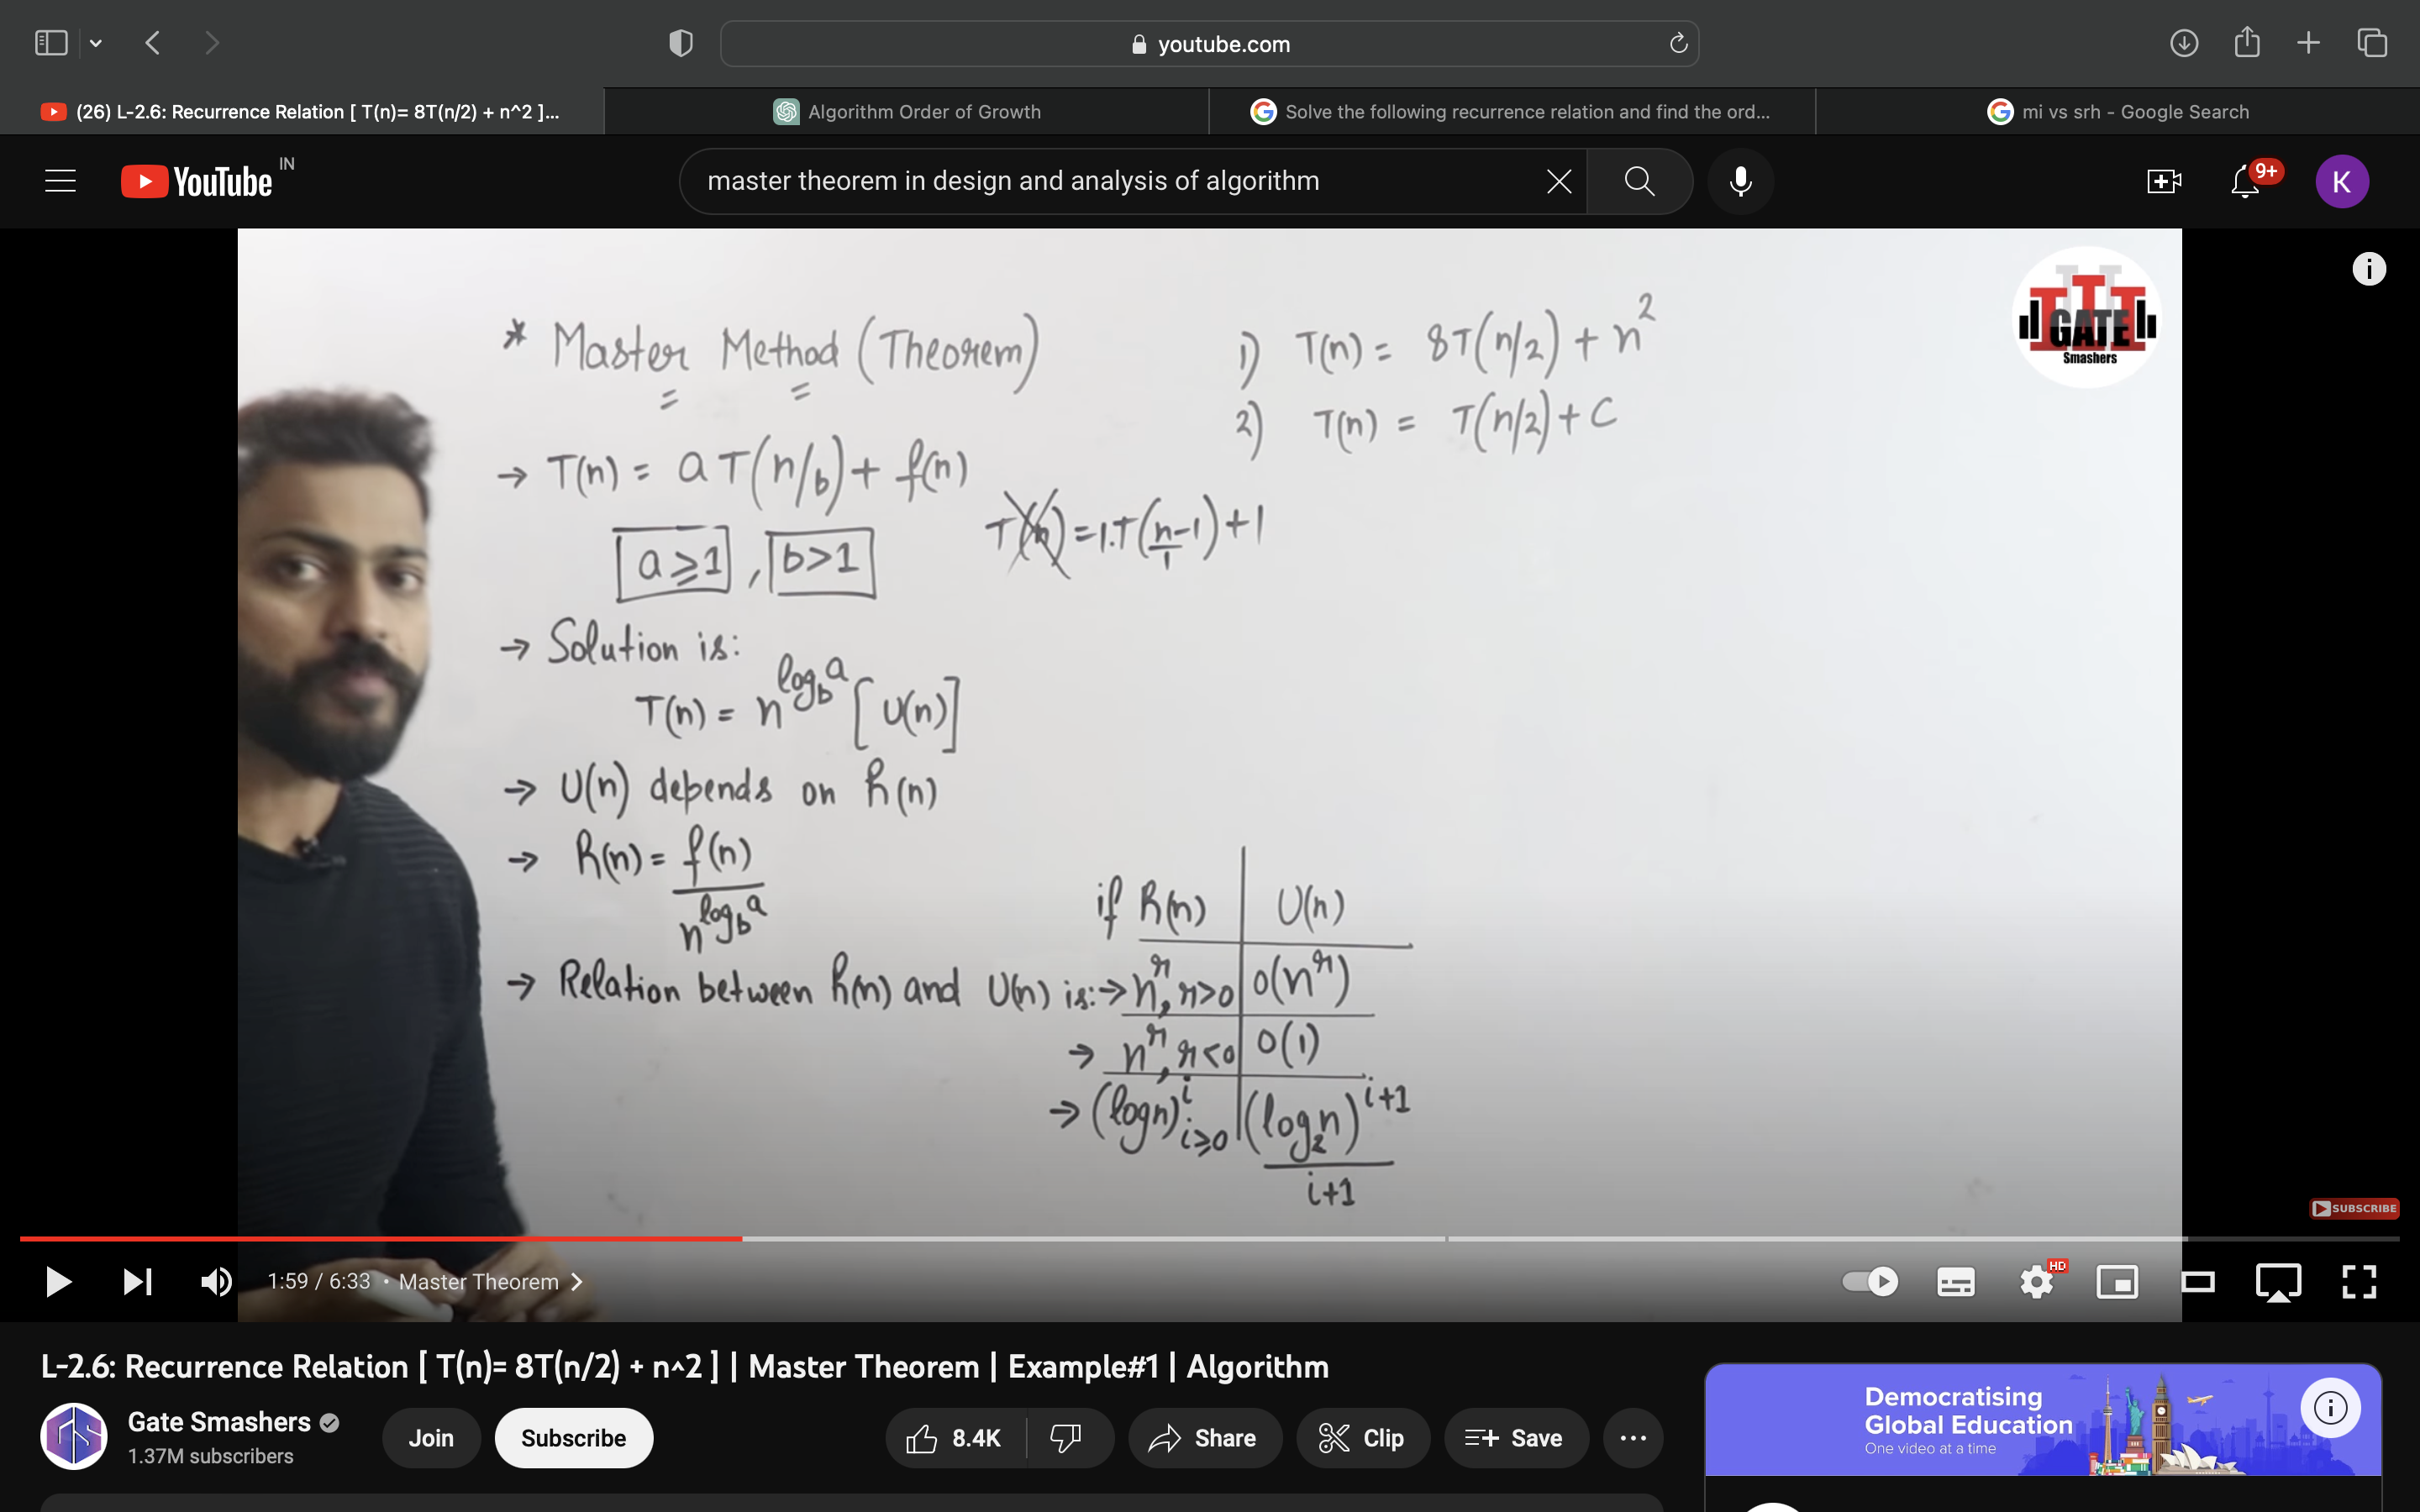 youtube.com
(26) L-2.6: Recurrence Relation [ T(n)= 8T(n/2) + n^2 ]...
Algorithm Order of Growth
Solve the following recurrence relation and find the ord...
mi vs srh - Google Search
YouTube IN
master theorem in design and analysis of algorithm
9+
K
* Master Method (Theorem)
1) T(n) = 8T(n/2) + n²
GATE
Smashers
2) T(n) = T(n/2) + C
→ T(n) = a T(n/b) + f(n)
a ≥ 1 , b > 1
T(n) = 1.T(n-1)+1
1
→ Solution is:
T(n) = n^log_b a [U(n)]
→ U(n) depends on R(n)
→ R(n) = f(n)
n^log_b a
if R(n) | U(n)
→ Relation between R(n) and U(n) is:→ n^r, r>0 | O(n^r)
→ n^r, r<0 | O(1)
→ (log n)^i i≥0 | (log₂n)^i+1
i+1
SUBSCRIBE
1:59 / 6:33 • Master Theorem
HD
L-2.6: Recurrence Relation [ T(n)= 8T(n/2) + n^2 ] | Master Theorem | Example#1 | Algorithm
Gate Smashers
1.37M subscribers
Join
Subscribe
8.4K
Share
Clip
Save
Democratising
Global Education
One video at a time